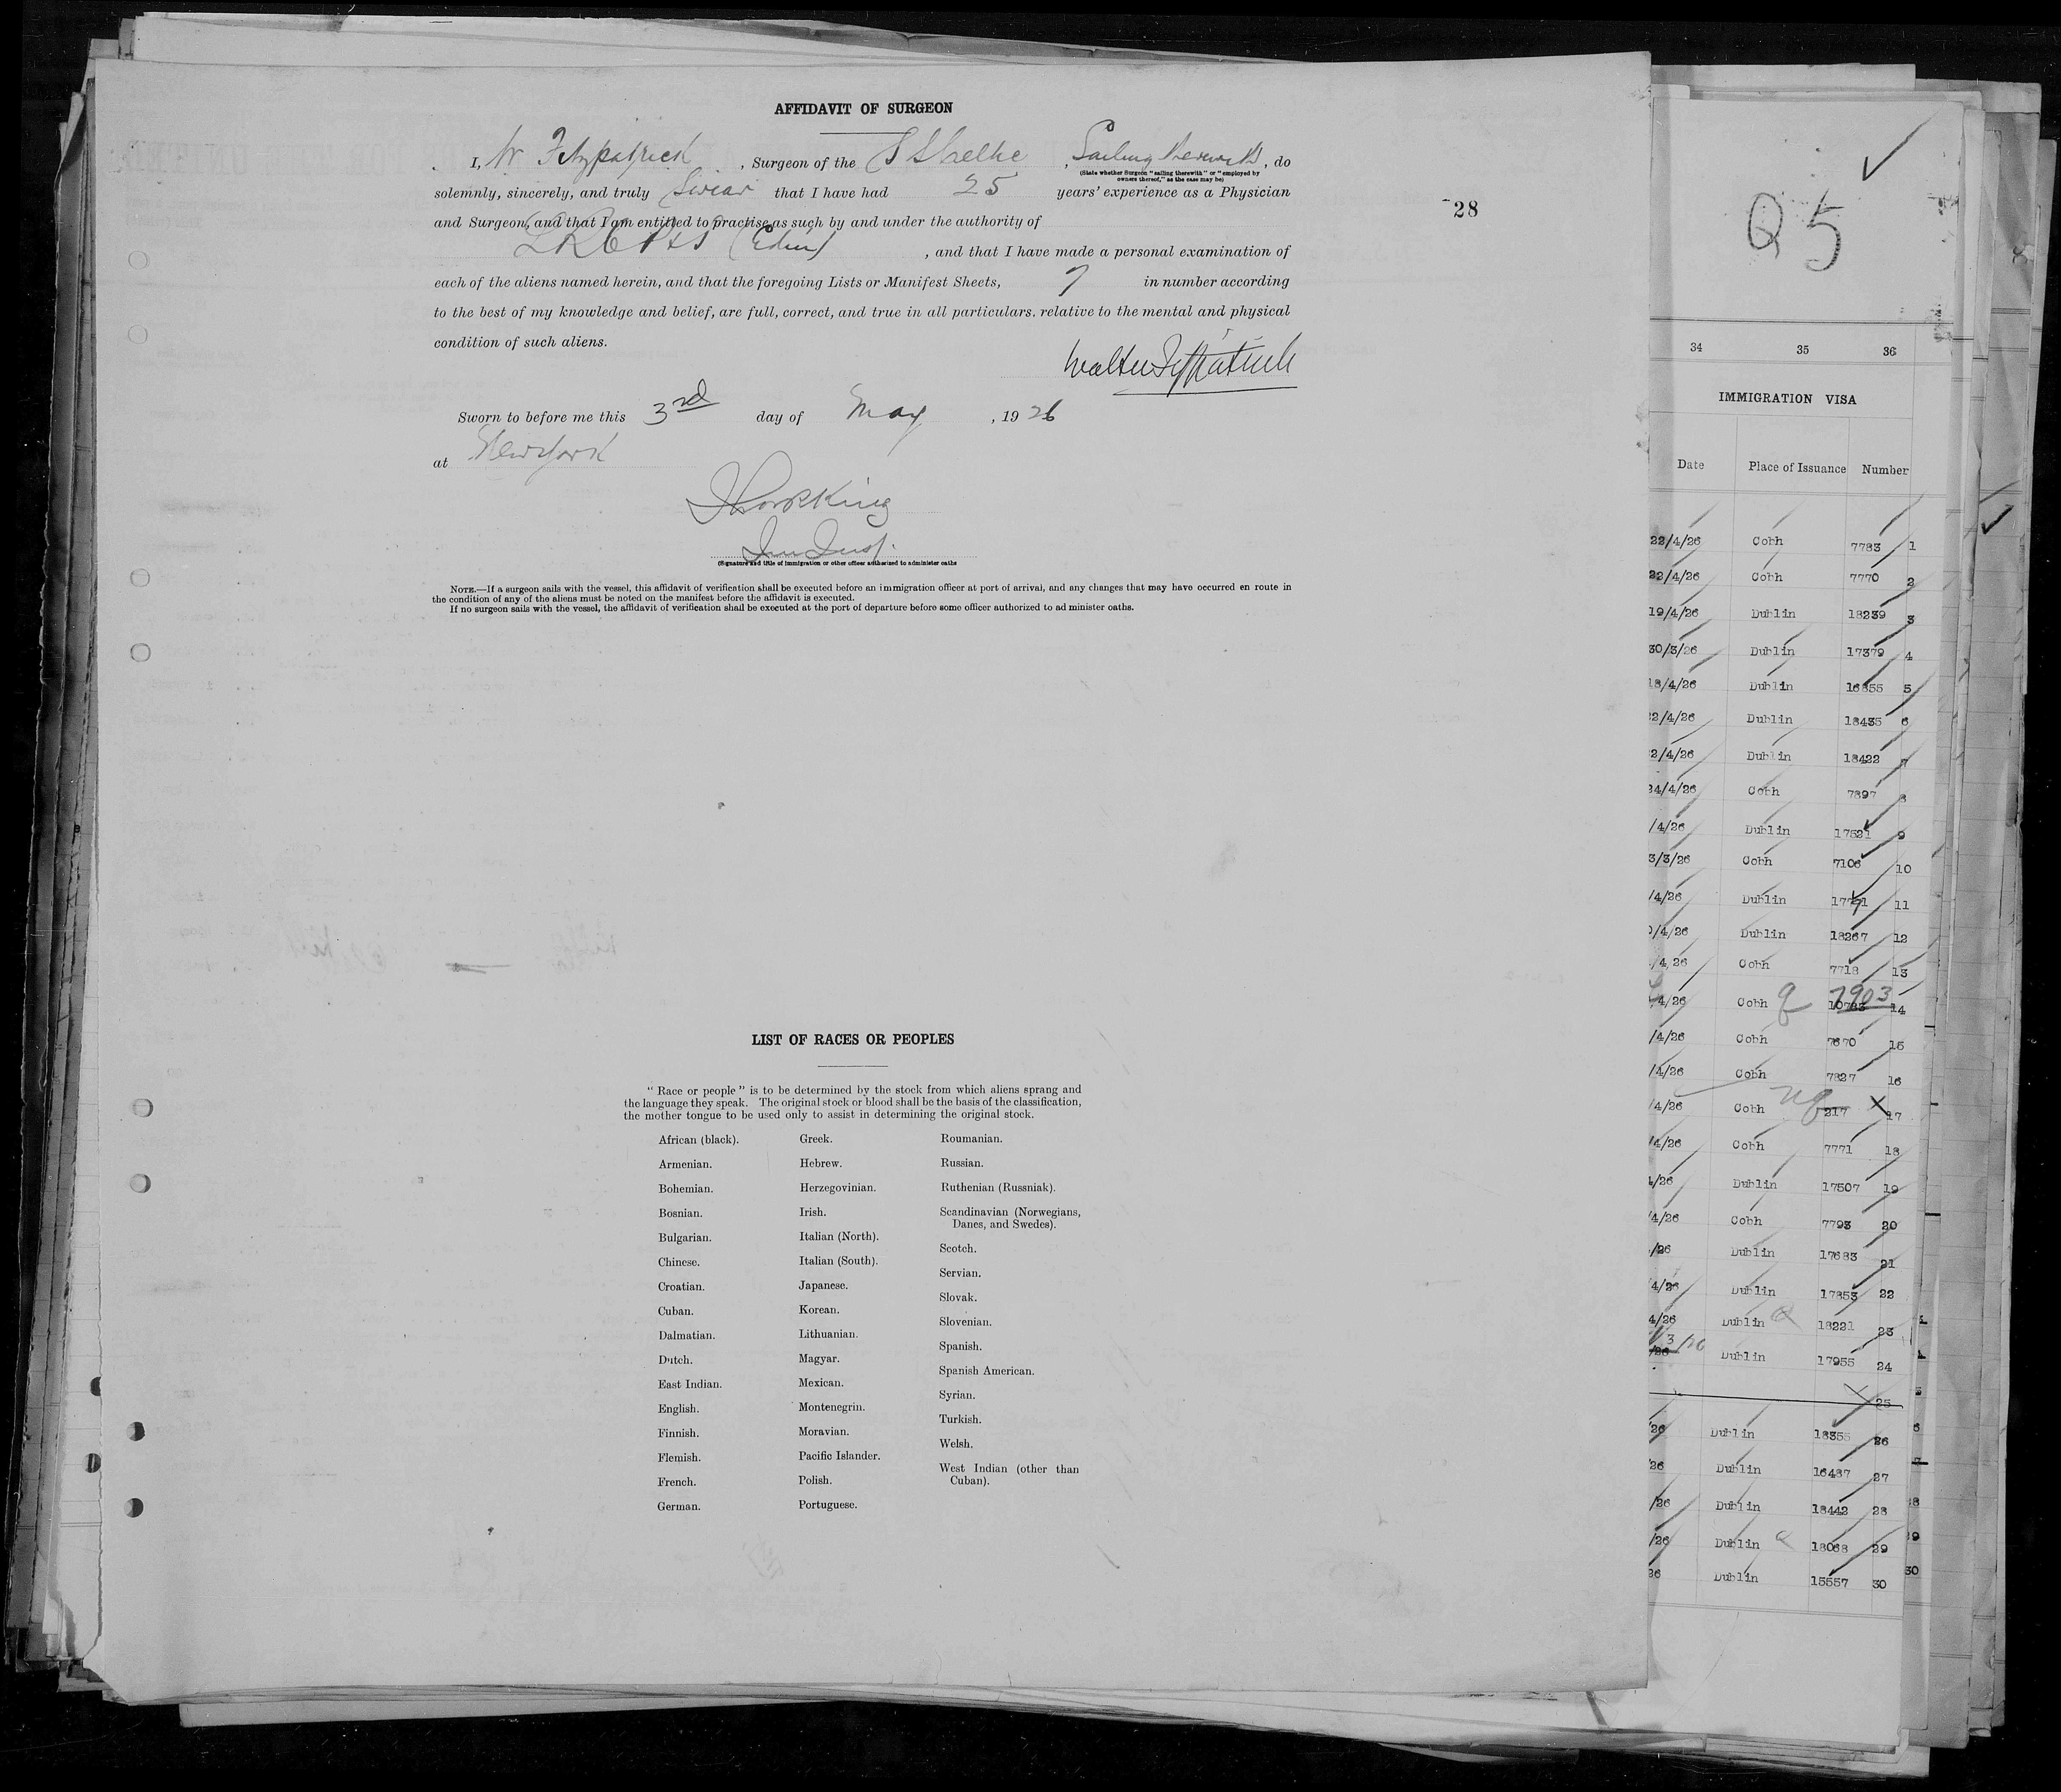 AFFIDAVIT OF SURGEON
I, W Fitzpatrick, Surgeon of the SS Celtic, Sailing therewith, do
(State whether Surgeon "sailing therewith" or "employed by
owners thereof," as the case may be)
solemnly, sincerely, and truly Swear that I have had 25 years' experience as a Physician
and Surgeon, and that I am entitled to practise as such by and under the authority of
LRCP&S (Edin), and that I have made a personal examination of
each of the aliens named herein, and that the foregoing Lists or Manifest Sheets, 7 in number according
to the best of my knowledge and belief, are full, correct, and true in all particulars. relative to the mental and physical
condition of such aliens.
Walter Fitzpatrick
Sworn to before me this 3rd day of May, 1926
at New York
Imm Insp.
(Signature and title of immigration or other officer authorized to administer oaths
NOTE.—If a surgeon sails with the vessel, this affidavit of verification shall be executed before an immigration officer at port of arrival, and any changes that may have occurred en route in
the condition of any of the aliens must be noted on the manifest before the affidavit is executed.
If no surgeon sails with the vessel, the affidavit of verification shall be executed at the port of departure before some officer authorized to ad minister oaths.
28
LIST OF RACES OR PEOPLES
"Race or people" is to be determined by the stock from which aliens sprang and
the language they speak. The original stock or blood shall be the basis of the classification,
the mother tongue to be used only to assist in determining the original stock.
African (black).
Armenian.
Bohemian.
Bosnian.
Bulgarian.
Chinese.
Croatian.
Cuban.
Dalmatian.
Dutch.
East Indian.
English.
Finnish.
Flemish.
French.
German.
Greek.
Hebrew.
Herzegovinian.
Irish.
Italian (North).
Italian (South).
Japanese.
Korean.
Lithuanian.
Magyar.
Mexican.
Montenegrin.
Moravian.
Pacific Islander.
Polish.
Portuguese.
Roumanian.
Russian.
Ruthenian (Russniak).
Scandinavian (Norwegians,
Danes, and Swedes).
Scotch.
Servian.
Slovak.
Slovenian.
Spanish.
Spanish American.
Syrian.
Turkish.
Welsh.
West Indian (other than
Cuban).
Q5
34 35 36
IMMIGRATION VISA
Date Place of Issuance Number
22/4/26 Cobh 7783 1
22/4/26 Cobh 7770 2
19/4/26 Dublin 18239 3
30/3/26 Dublin 17379 4
18/4/26 Dublin 16855 5
2/4/26 Dublin 18435 6
2/4/26 Dublin 18422 7
24/4/26 Cobh 7897 8
/4/26 Dublin 17521 9
3/3/26 Cobh 7106 10
/4/26 Dublin 11
/4/26 Dublin 18267 12
/4/26 Cobh 7718 13
/4/26 Cobh 7903 14
/4/26 Cobh 7670 15
/4/26 Cobh 7827 16
/4/26 Cobh 217 17
/4/26 Cobh 7771 18
/26 Dublin 17507 19
/4/26 Cobh 7793 20
/26 Dublin 17683 21
4/26 Dublin 17853 22
4/26 Dublin 18221 23
/26 Dublin 17955 24
25
26 Dublin 18355 26
26 Dublin 16487 27
/26 Dublin 18442 28
/26 Dublin 18068 29
26 Dublin 15557 30